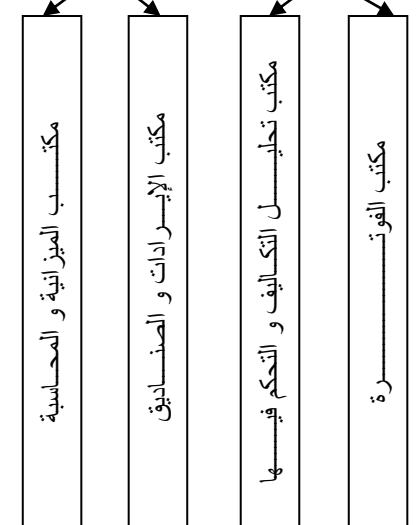 مكتب الفوترة
مكتب تحليل التكاليف و التحكم فيها
مكتب الإيرادات و الصناديق
مكتب الميزانية و المحاسبة